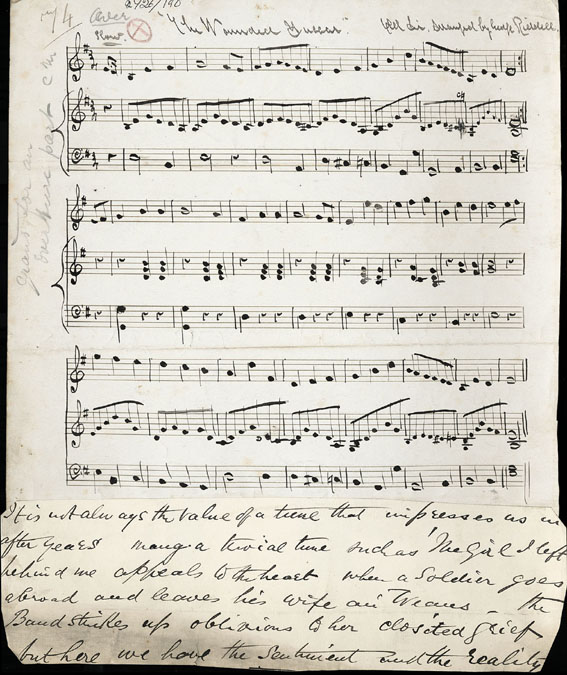 74 Over 2926/190
"The Wounded Hussar" Old Air, Arranged by George Riddell.
It is not always the value of a tune that impresses us in
after years many a trivial tune such as 'The Girl I left
behind me appeals to the heart when a Soldier goes
abroad and leaves his wife an' Weans – the
Band strikes up oblivious to her closeted grief
but here we have the Sentiment and the reality